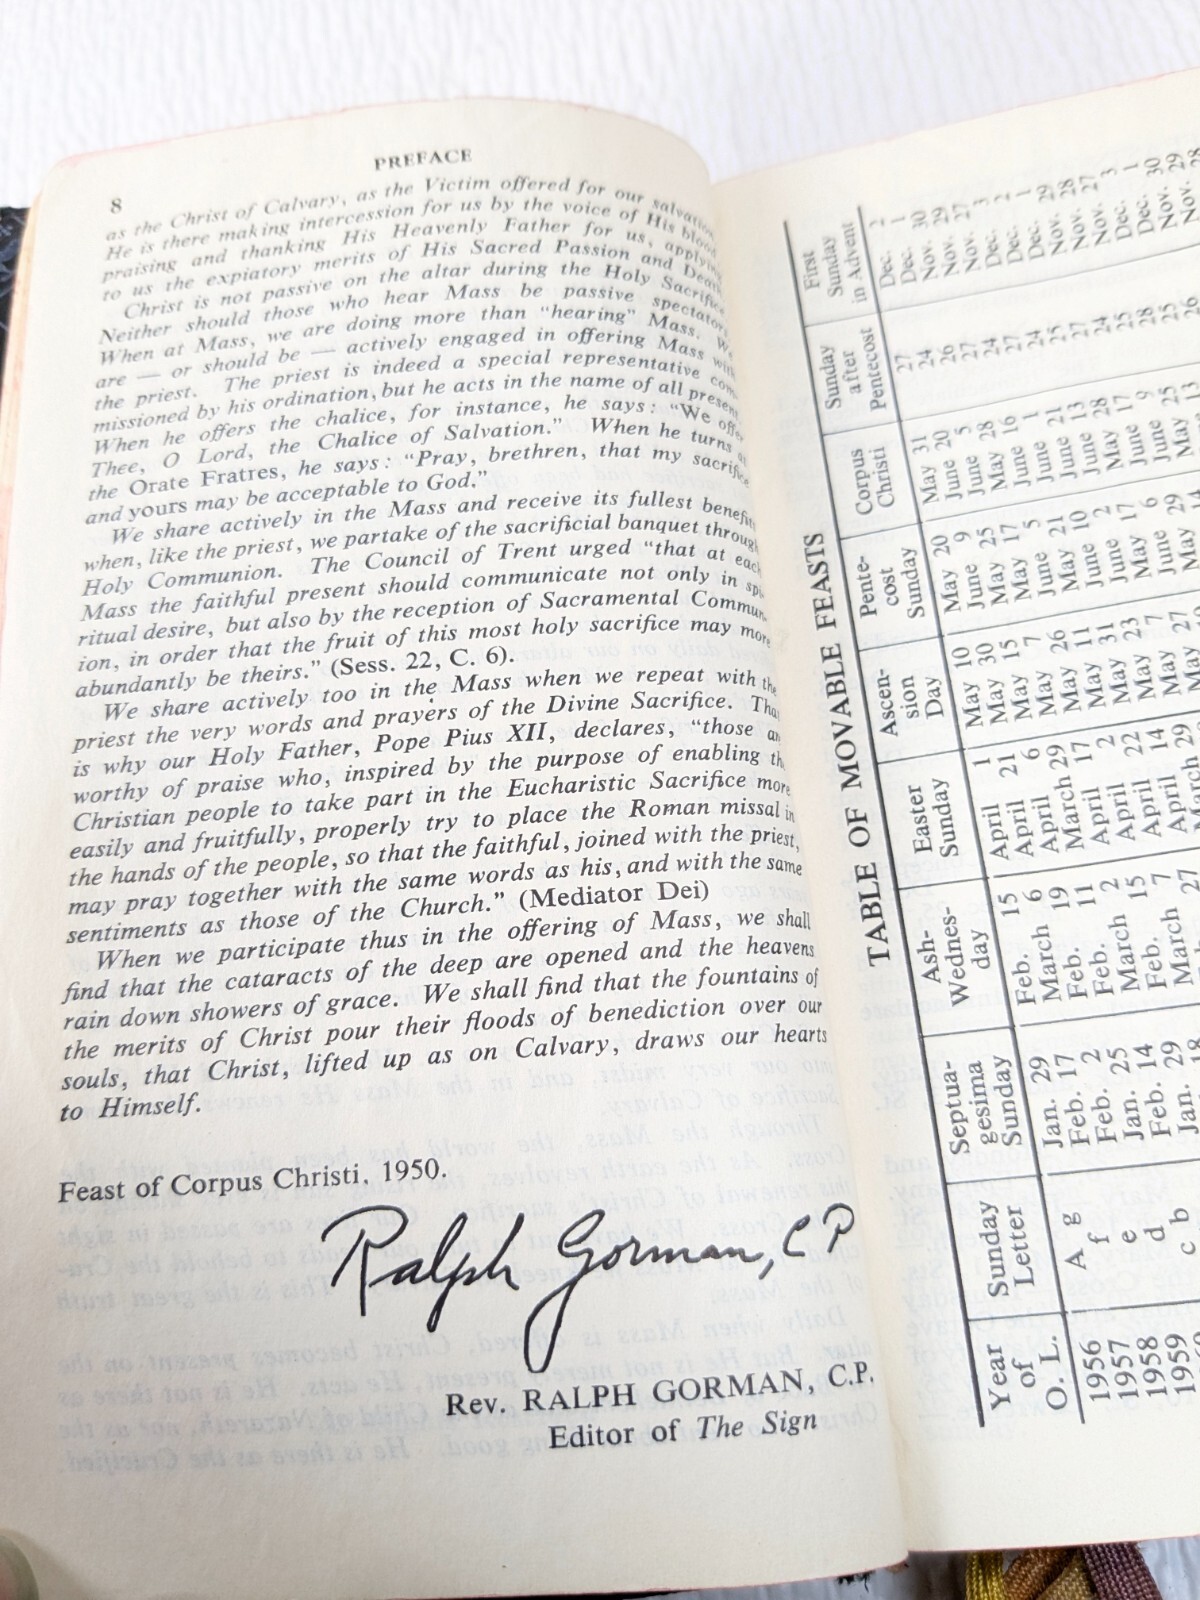 PREFACE
8
as the Christ of Calvary, as the Victim offered for our salvation
He is there making intercession for us by the voice of His blood
praising and thanking His Heavenly Father for us, applying
to us the expiatory merits of His Sacred Passion and Death
Christ is not passive on the altar during the Holy Sacrifice
Neither should those who hear Mass be passive spectators
When at Mass, we are doing more than "hearing" Mass. We
are — or should be — actively engaged in offering Mass with
the priest. The priest is indeed a special representative com-
missioned by his ordination, but he acts in the name of all present
When he offers the chalice, for instance, he says: "We offer
Thee, O Lord, the Chalice of Salvation." When he turns at
the Orate Fratres, he says: "Pray, brethren, that my sacrifice
and yours may be acceptable to God."
We share actively in the Mass and receive its fullest benefits
when, like the priest, we partake of the sacrificial banquet through
Holy Communion. The Council of Trent urged "that at each
Mass the faithful present should communicate not only in spi-
ritual desire, but also by the reception of Sacramental Commun-
ion, in order that the fruit of this most holy sacrifice may more
abundantly be theirs." (Sess. 22, C. 6).
We share actively too in the Mass when we repeat with the
priest the very words and prayers of the Divine Sacrifice. That
is why our Holy Father, Pope Pius XII, declares, "those are
worthy of praise who, inspired by the purpose of enabling the
Christian people to take part in the Eucharistic Sacrifice more
easily and fruitfully, properly try to place the Roman missal in
the hands of the people, so that the faithful, joined with the priest,
may pray together with the same words as his, and with the same
sentiments as those of the Church." (Mediator Dei)
When we participate thus in the offering of Mass, we shall
find that the cataracts of the deep are opened and the heavens
rain down showers of grace. We shall find that the fountains of
the merits of Christ pour their floods of benediction over our
souls, that Christ, lifted up as on Calvary, draws our hearts
to Himself.
Feast of Corpus Christi, 1950.
Ralph Gorman, CP
Rev. RALPH GORMAN, C.P.
Editor of The Sign
TABLE OF MOVABLE FEASTS
Year of O. L. Sunday Letter Septua- gesima Sunday Ash- Wednes- day Easter Sunday Ascen- sion Day Pente- cost Sunday Corpus Christi Sunday after Pentecost First Sunday in Advent
1956 A g Jan. 29 Feb. 15 April 1 May 10 May 20 May 31 27 Dec. 2
1957 f Feb. 17 March 6 April 21 May 30 June 9 June 20 24 Dec. 1
1958 e Feb. 2 Feb. 19 April 6 May 15 May 25 June 5 26 Nov. 30
1959 d Jan. 25 Feb. 11 March 29 May 7 May 17 May 28 27 Nov. 29